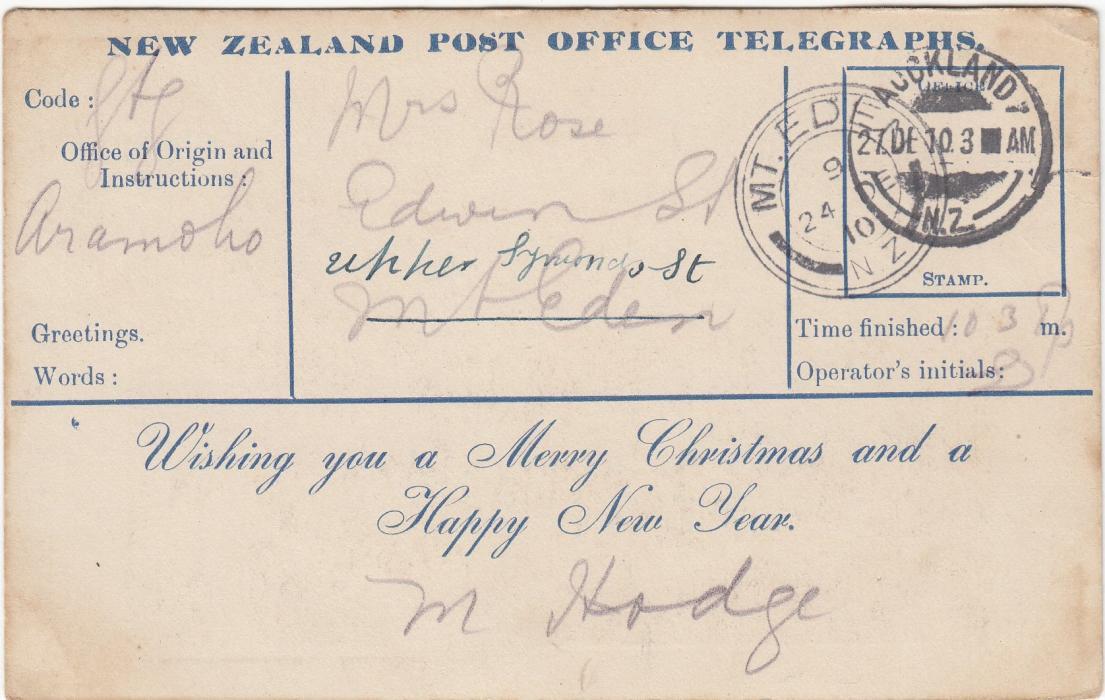 NEW ZEALAND POST OFFICE TELEGRAPHS.
Code : gtg
Office of Origin and
Instructions :
Aramoho
Greetings.
Words :
Mrs Rose
Edwin St
upper Symonds St
Mt Eden
OFFICE
STAMP.
MT. EDEN
9
24 DE 10
N.Z
AUCKLAND
27 DE 10 3 AM
N.Z.
Time finished : 10 3 m.
Operator's initials:
Wishing you a Merry Christmas and a
Happy New Year.
M Hodge